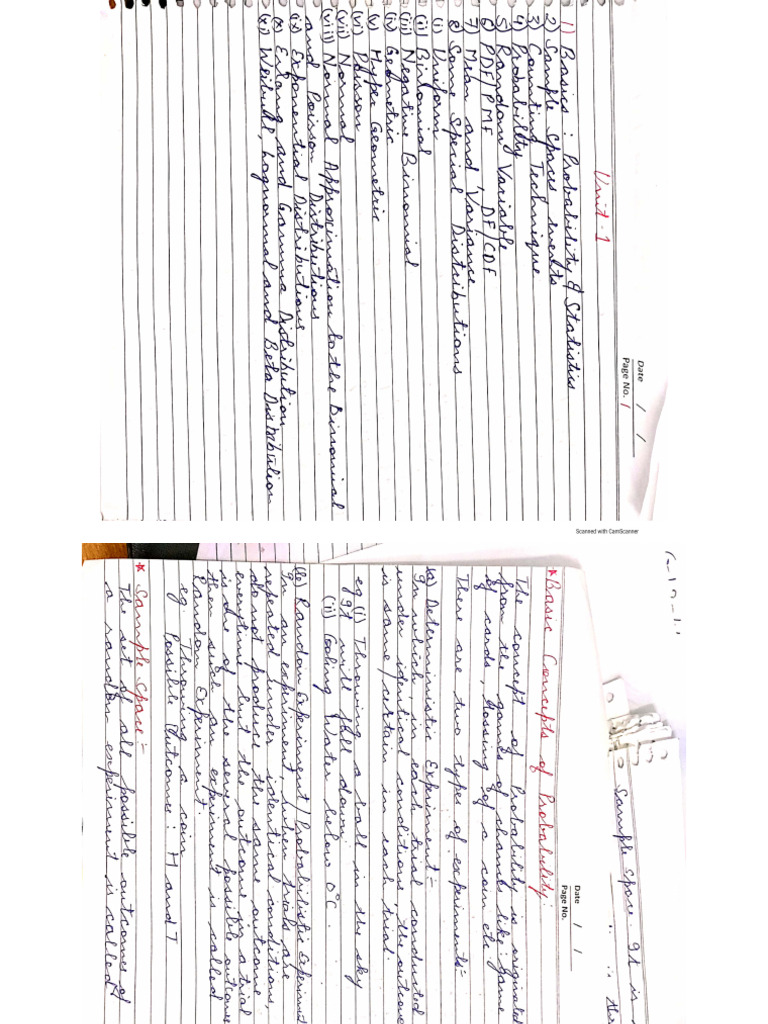 Date / /
Page No. 1
Unit-1
1) Basics : Probability & Statistics
2) Sample Spaces events
3) Counting Technique
4) Probability
5) Random Variable
6) PDF/PMF, DF/CDF
7) Mean and Variance
8) Some Special Distributions
(i) Uniform
(ii) Binomial
(iii) Negative Binomial
(iv) Geometric
(v) Hyper Geometric
(vi) Poisson
(vii) Normal
(viii) Normal Approximation to the Binomial
and Poisson Distributions
(ix) Exponential Distributions
(x) Erlang and Gamma Distribution
(xi) Weibull, Lognormal and Beta Distribution
Scanned with CamScanner
Sample Space. It is
Date / /
Page No.
* Basic Concepts of Probability:
The concept of Probability is originated
from the games of chance like game
of cards, tossing of a coin etc.
There are two types of experiments-
(a) Deterministic Experiment:-
In which, in each trial conducted
under identical conditions, the outcome
is same/certain in each trial.
eg (i) Throwing a ball in the sky
It will fall down.
(ii) Cooling Water below 0°C.
(b) Random Experiment/Probabilistic Experiment
In an experiment when trials are
repeated under identical conditions,
do not produce the same outcome
everytime but the outcome in a trial
is one of the several possible outcomes
then such an experiment is called
Random Experiment.
eg. Throwing a coin
Possible Outcomes : H and T
* Sample Space:-
The set of all possible outcomes of
a random experiment is called